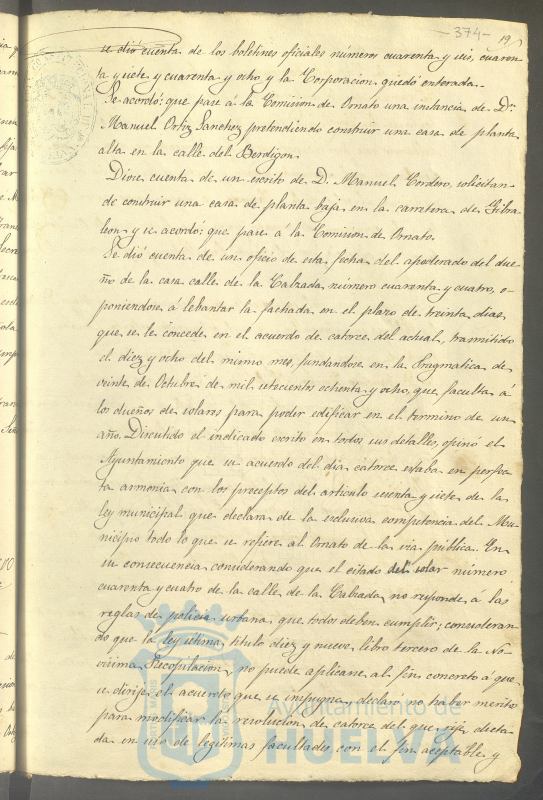 -374-
19
se dió cuenta de los boletines oficiales números cuarenta y seis, cuaren-
ta y siete y cuarenta y ocho, y la Corporacion quedó enterada.
Se acordó: que pase á la Comision de Ornato una instancia de Dn.
Manuel Ortiz Sanchez pretendiendo construir una casa de planta
alta en la calle del Berdigon.
Diose cuenta de un escrito de D. Manuel Cordero, solicitan-
do construir una casa de planta baja en la carretera de Gibra-
leon y se acordó: que pase á la Comision de Ornato.
Se dió cuenta de un oficio de esta fecha del apoderado del due-
ño de la casa calle de la Calzada número cuarenta y cuatro, o-
poniendose á lebantar la fachada en el plazo de treinta dias
que se le concede en el acuerdo de catorce del actual, trasmitido
el diez y ocho del mismo mes, fundandose en la Pragmatica de
veinte de Octubre de mil setecientos ochenta y ocho, que faculta á
los dueños de solares para poder edificar en el termino de un
año. Discutido el indicado escrito en todos sus detalles, opinó el
Ayuntamiento que su acuerdo del dia catorce estaba en perfec-
ta armonia con los preceptos del articulo sesenta y siete de la
ley municipal que declara de la esclusiva competencia del Mu-
nicipio todo lo que se refiere al Ornato de la via pública. En
su consecuencia considerando que el estado del solar número
cuarenta y cuatro de la calle de la Calzada, no responde á las
reglas de policia urbana que todos deben cumplir; consideran-
do que la ley setima, titulo diez y nueve, libro tercero de la No-
visima Recopilacion, no puede aplicarse al fin concreto á que
se dirije el acuerdo que se impugna, declaró no haber merito
para modificar la resolucion de catorce del que rije, dicta-
da en uso de legitimas facultades con el fin aceptable y
Ayuntamiento de
HUELVA